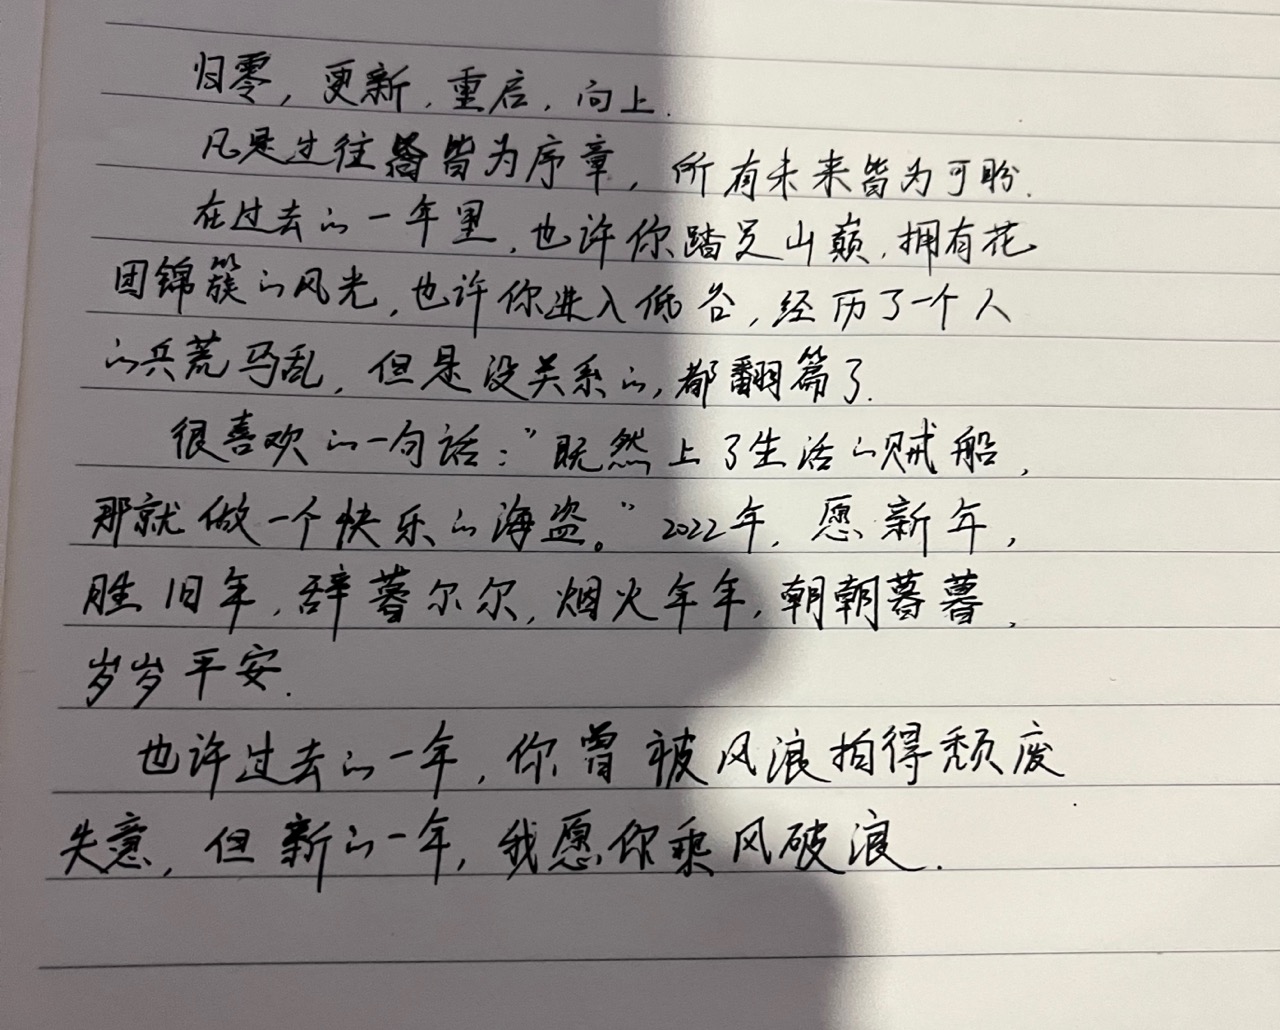 归零，更新，重启，向上.
凡是过往皆为序章，所有未来皆为可盼.
在过去的一年里，也许你踏足山巅，拥有花
团锦簇的风光，也许你进入低谷，经历了一个人
的兵荒马乱，但是没关系的，都翻篇了.
很喜欢的一句话：“既然上了生活的贼船，
那就做一个快乐的海盗。”2022年，愿新年，
胜旧年，辞暮尔尔，烟火年年，朝朝暮暮，
岁岁平安.
也许过去的一年，你曾被风浪拍得颓废
失意，但新的一年，我愿你乘风破浪.